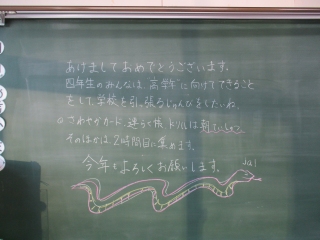 あけましておめでとうございます。
四年生のみんなは、高学年に向けてできること
をして、学校を引っ張るじゅんびをしたいね。
さわやかカード、漢ド、ドリルは朝
そのほかは2時間目に集めます。
今年もよろしくお願いします。
Ja!